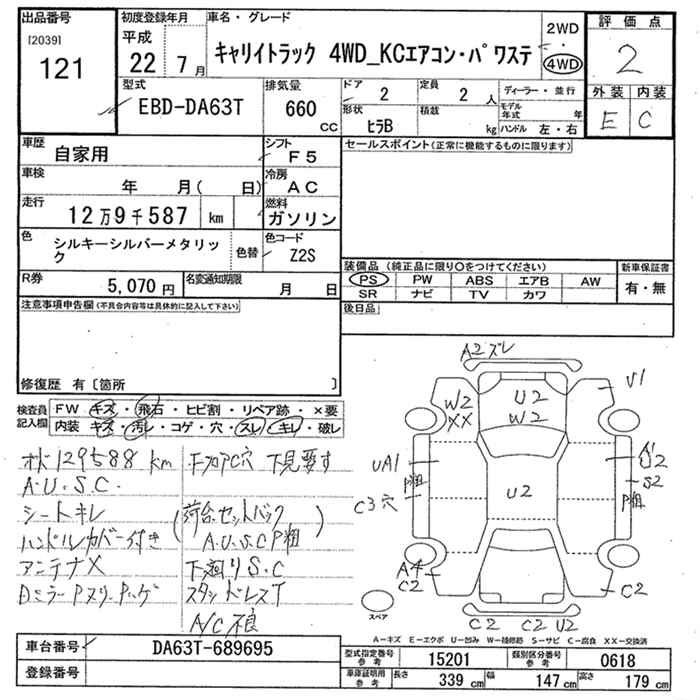 出品番号
[2039]
121
初度登録年月
平成
22 7 月
車名・グレード
キャリイトラック 4WD_KCエアコン・パワステ
2WD
・
4WD
評価点
2
外装 内装
E C
型式
EBD-DA63T
排気量
660 CC
ドア 2
定員 2 人
形状 ヒラB
積載 kg
ディーラー・並行
モデル年式 年
ハンドル 左・右
車歴 自家用
シフト F5
車検 年 月( 日)
冷房 AC
走行 12万9千587 km
燃料 ガソリン
色 シルキーシルバーメタリック
色替
色コード Z2S
R券 5,070円
名変通知期限 月 日
セールスポイント(正常に機能するものに限ります)
装備品(純正品に限り〇をつけてください)
新車保証書
PS PW ABS エアB AW
有・無
SR ナビ TV カワ
後日品
注意事項申告欄(不具合内容等は具体的に記入して下さい)
修復歴 有〔箇所 〕
検査員記入欄
FW キズ・飛石・ヒビ割・リペア跡・×要
内装 キズ・汚レ・コゲ・穴・スレ・キレ・破レ
129588 km
フロアC穴 下見要す
A.U.S.C.
シートキレ
(荷台セットバック
A.U.S.C P粗)
ハンドルカバー付き
アンテナX
下廻りS.C
Dミラー Pヌリ.Pハゲ
スタッドレスT
A/C不良
A2ズレ
W2
XX
U2
W2
V1
UA1
P粗
C3穴
U2
A1
U2
S2
P粗
A4
C2
C2
C2 C2 U2
スペア
A-キズ E-エクボ U-凹み W-補修跡 S-サビ C-腐食 XX-交換済
車台番号 DA63T-689695
登録番号
型式指定番号 参考 15201
類別区分番号 参考 0618
車庫証明用 参考
長さ 339 cm
幅 147 cm
高さ 179 cm